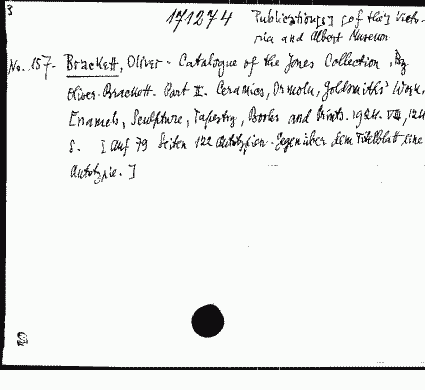 3
171274 Publication[s] [of the] Victo-
ria and Albert Museum
No. 157. Brackett, Oliver - Catalogue of the Jones Collection, By
Oliver Brackett. Part II. Ceramics, Ormolu, Goldsmiths' Work,
Enamels, Sculpture, Tapestry, Books and Prints. 1924. VIII, 124
S. [Auf 79 Seiten 122 Autotypien. Gegenüber dem Titelblatt eine
Autotypie.]